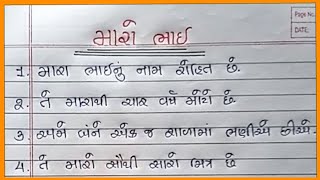 Page No.
DATE:
મારો ભાઈ
1. મારા ભાઈનું નામ રોહિત છે.
2. તે મારાથી ચાર વર્ષ મોટો છે.
3. અમે બંને એક જ શાળામાં ભણીએ છીએ.
4. તે મારો સૌથી સારો મિત્ર છે